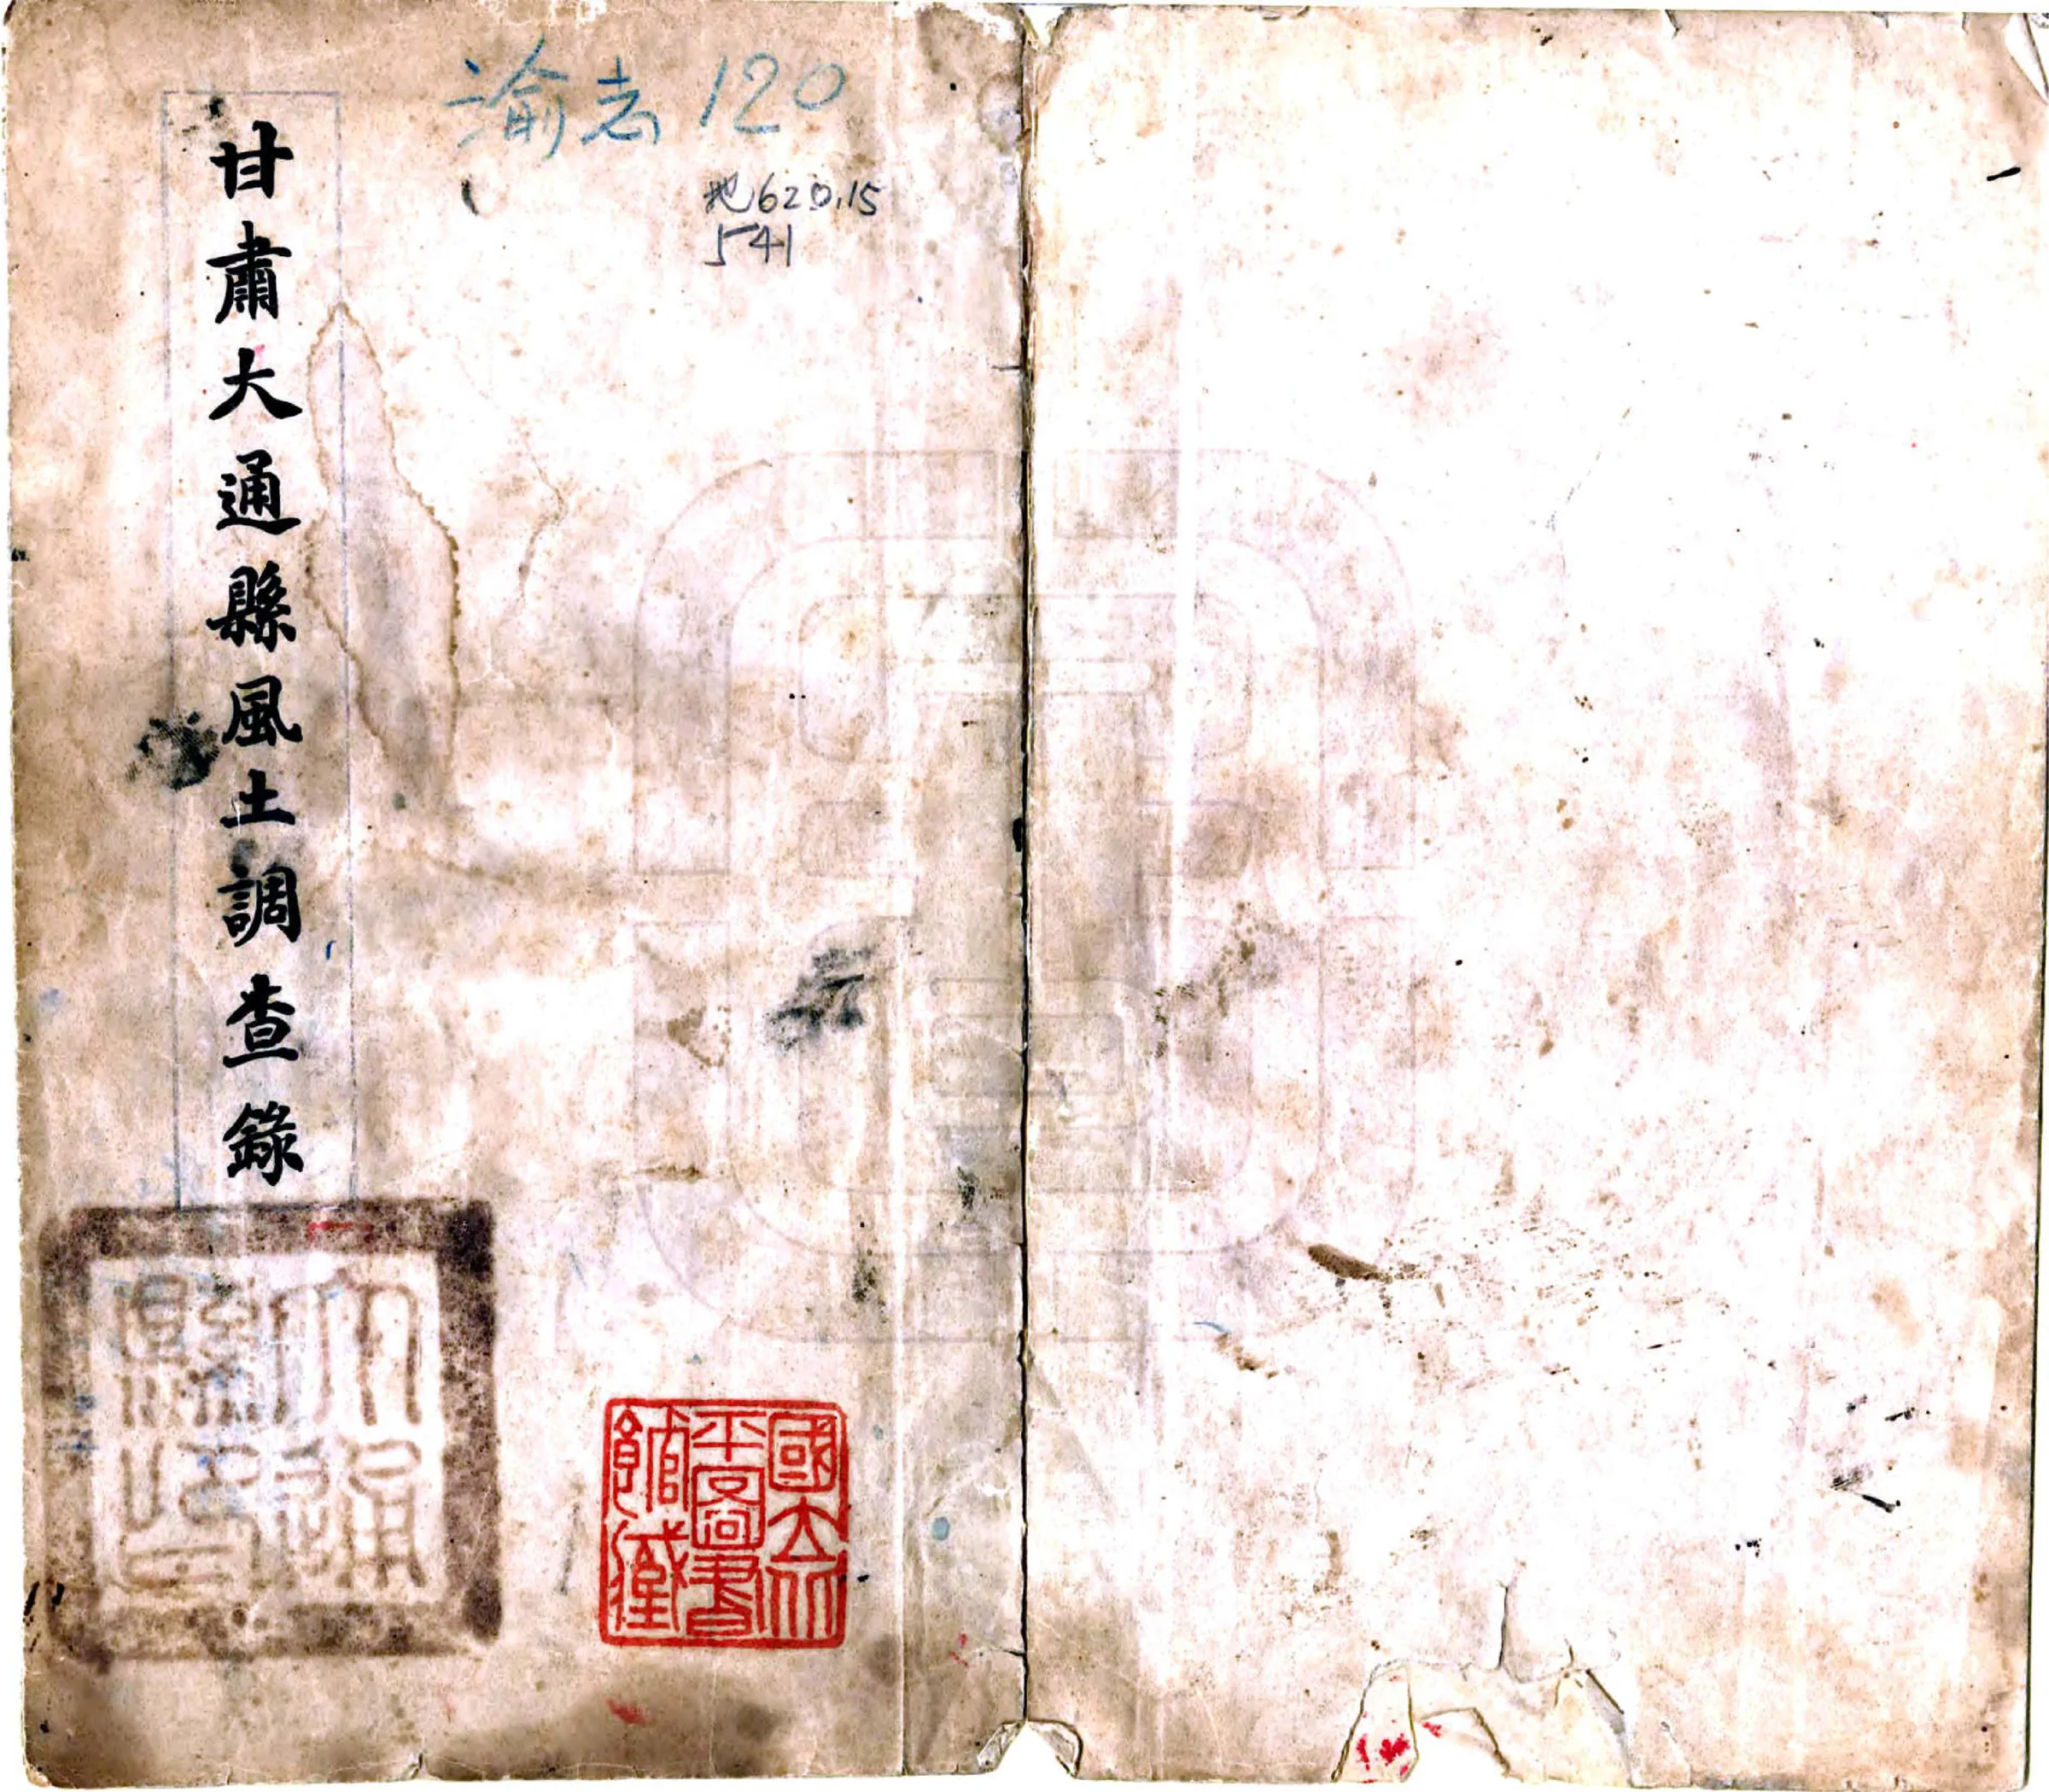 渝志 120
地620.15
541
甘肅大通縣風土調查錄
大通縣印
國立北平圖書館藏